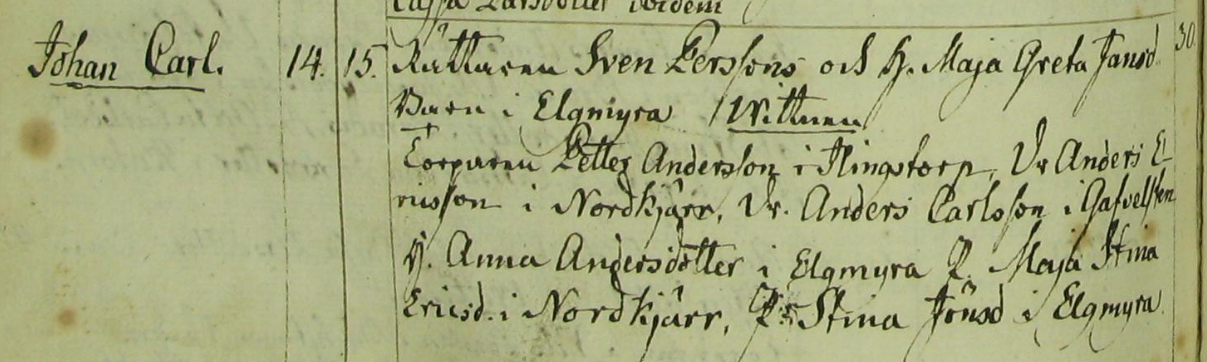 Cajsa Larsdotter ibidem
Johan Carl. 14. 15. Rättaren Sven Perssons och H. Maja Greta Jansd. 30.
Barn i Elgmyra / Wittnen
Torparen Petter Andersson i Flingstorp, Dr Anders E
ricsson i Nordkjärr, Dr. Anders Carlsson i
H. Anna Andersdotter i Elgmyra P. Maja Stina
Ericsd. i Nordkjärr, P. Stina Jönsd i Elgmyra.